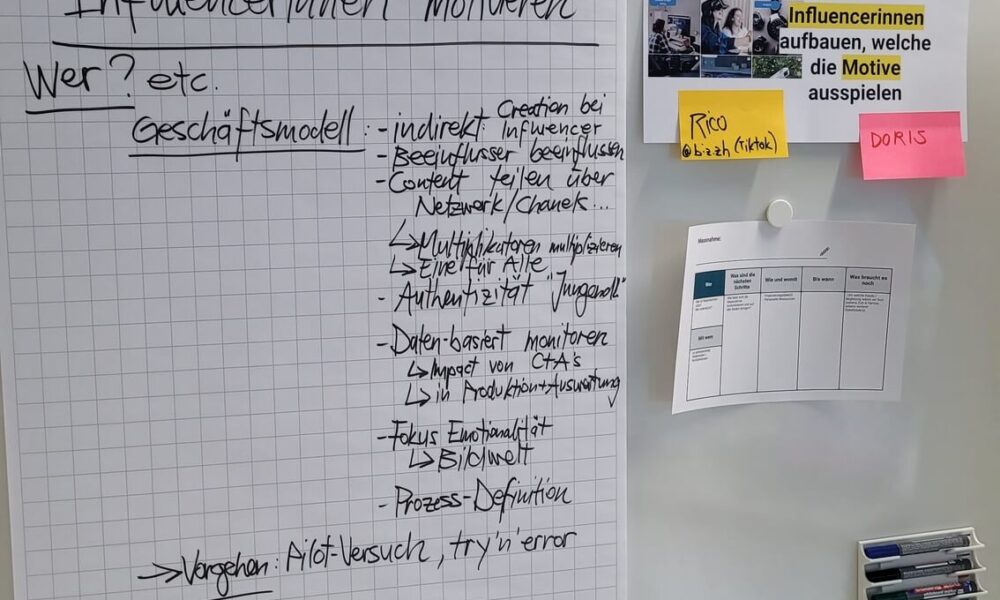 InfluencerInnen motivieren
Wer? etc.
Geschäftsmodell: - indirekt: Creation bei
Influencer
- Beeinflusser beeinflussen
- Content teilen über
Netzwerk/Chanels...
↳ Multiplikatoren multiplizieren
↳ Eine für Alle
- Authentizität
- Daten-basiert monitoren
↳ Impact von CtA's
↳ in Produktion + Auswertung
- Fokus Emotionalität
↳ Bildwelt
- Prozess-Definition
→ Vorgehen: Pilot-Versuch, try'n'error
Influencerinnen
aufbauen, welche
die Motive
ausspielen
Rico
@b.z.zh (Tiktok)
DORIS
Massnahme:
Wer
Was sind die
nächsten
Schritte
Wie und womit
Bis wann
Was braucht es
noch
Mit wem